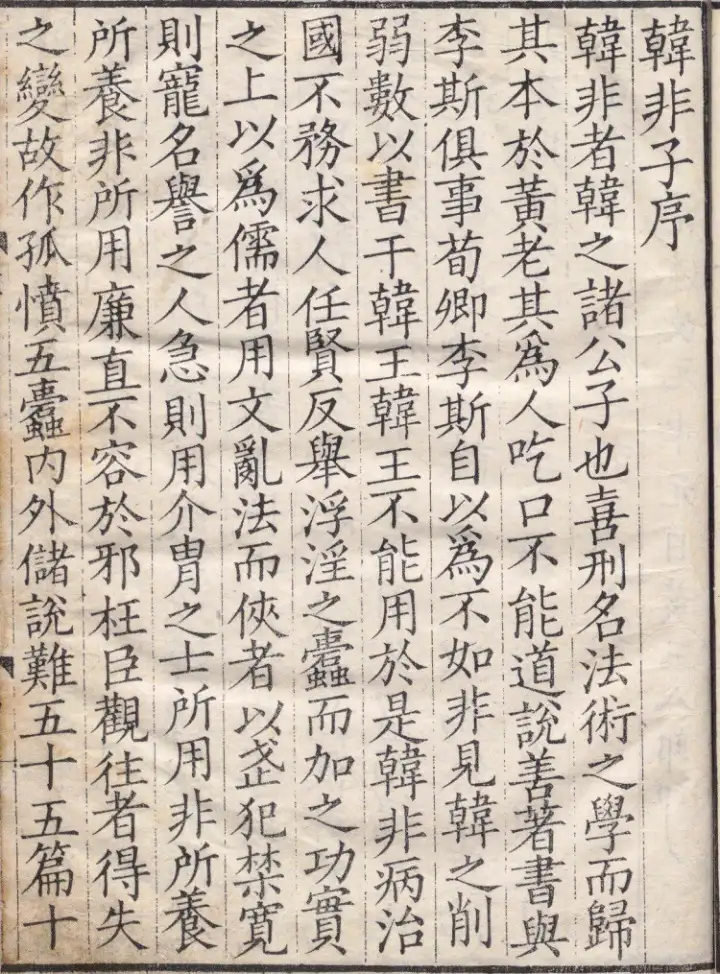 韓非子序
韓非者韓之諸公子也喜刑名法術之學而歸
其本於黃老其爲人吃口不能道說善著書與
李斯俱事荀卿李斯自以爲不如非見韓之削
弱數以書干韓王韓王不能用於是韓非病治
國不務求人任賢反舉浮淫之蠹而加之功實
之上以爲儒者用文亂法而俠者以武犯禁寬
則寵名譽之人急則用介冑之士所用非所養
所養非所用廉直不容於邪枉臣觀往者得失
之變故作孤憤五蠹内外儲說難五十五篇十